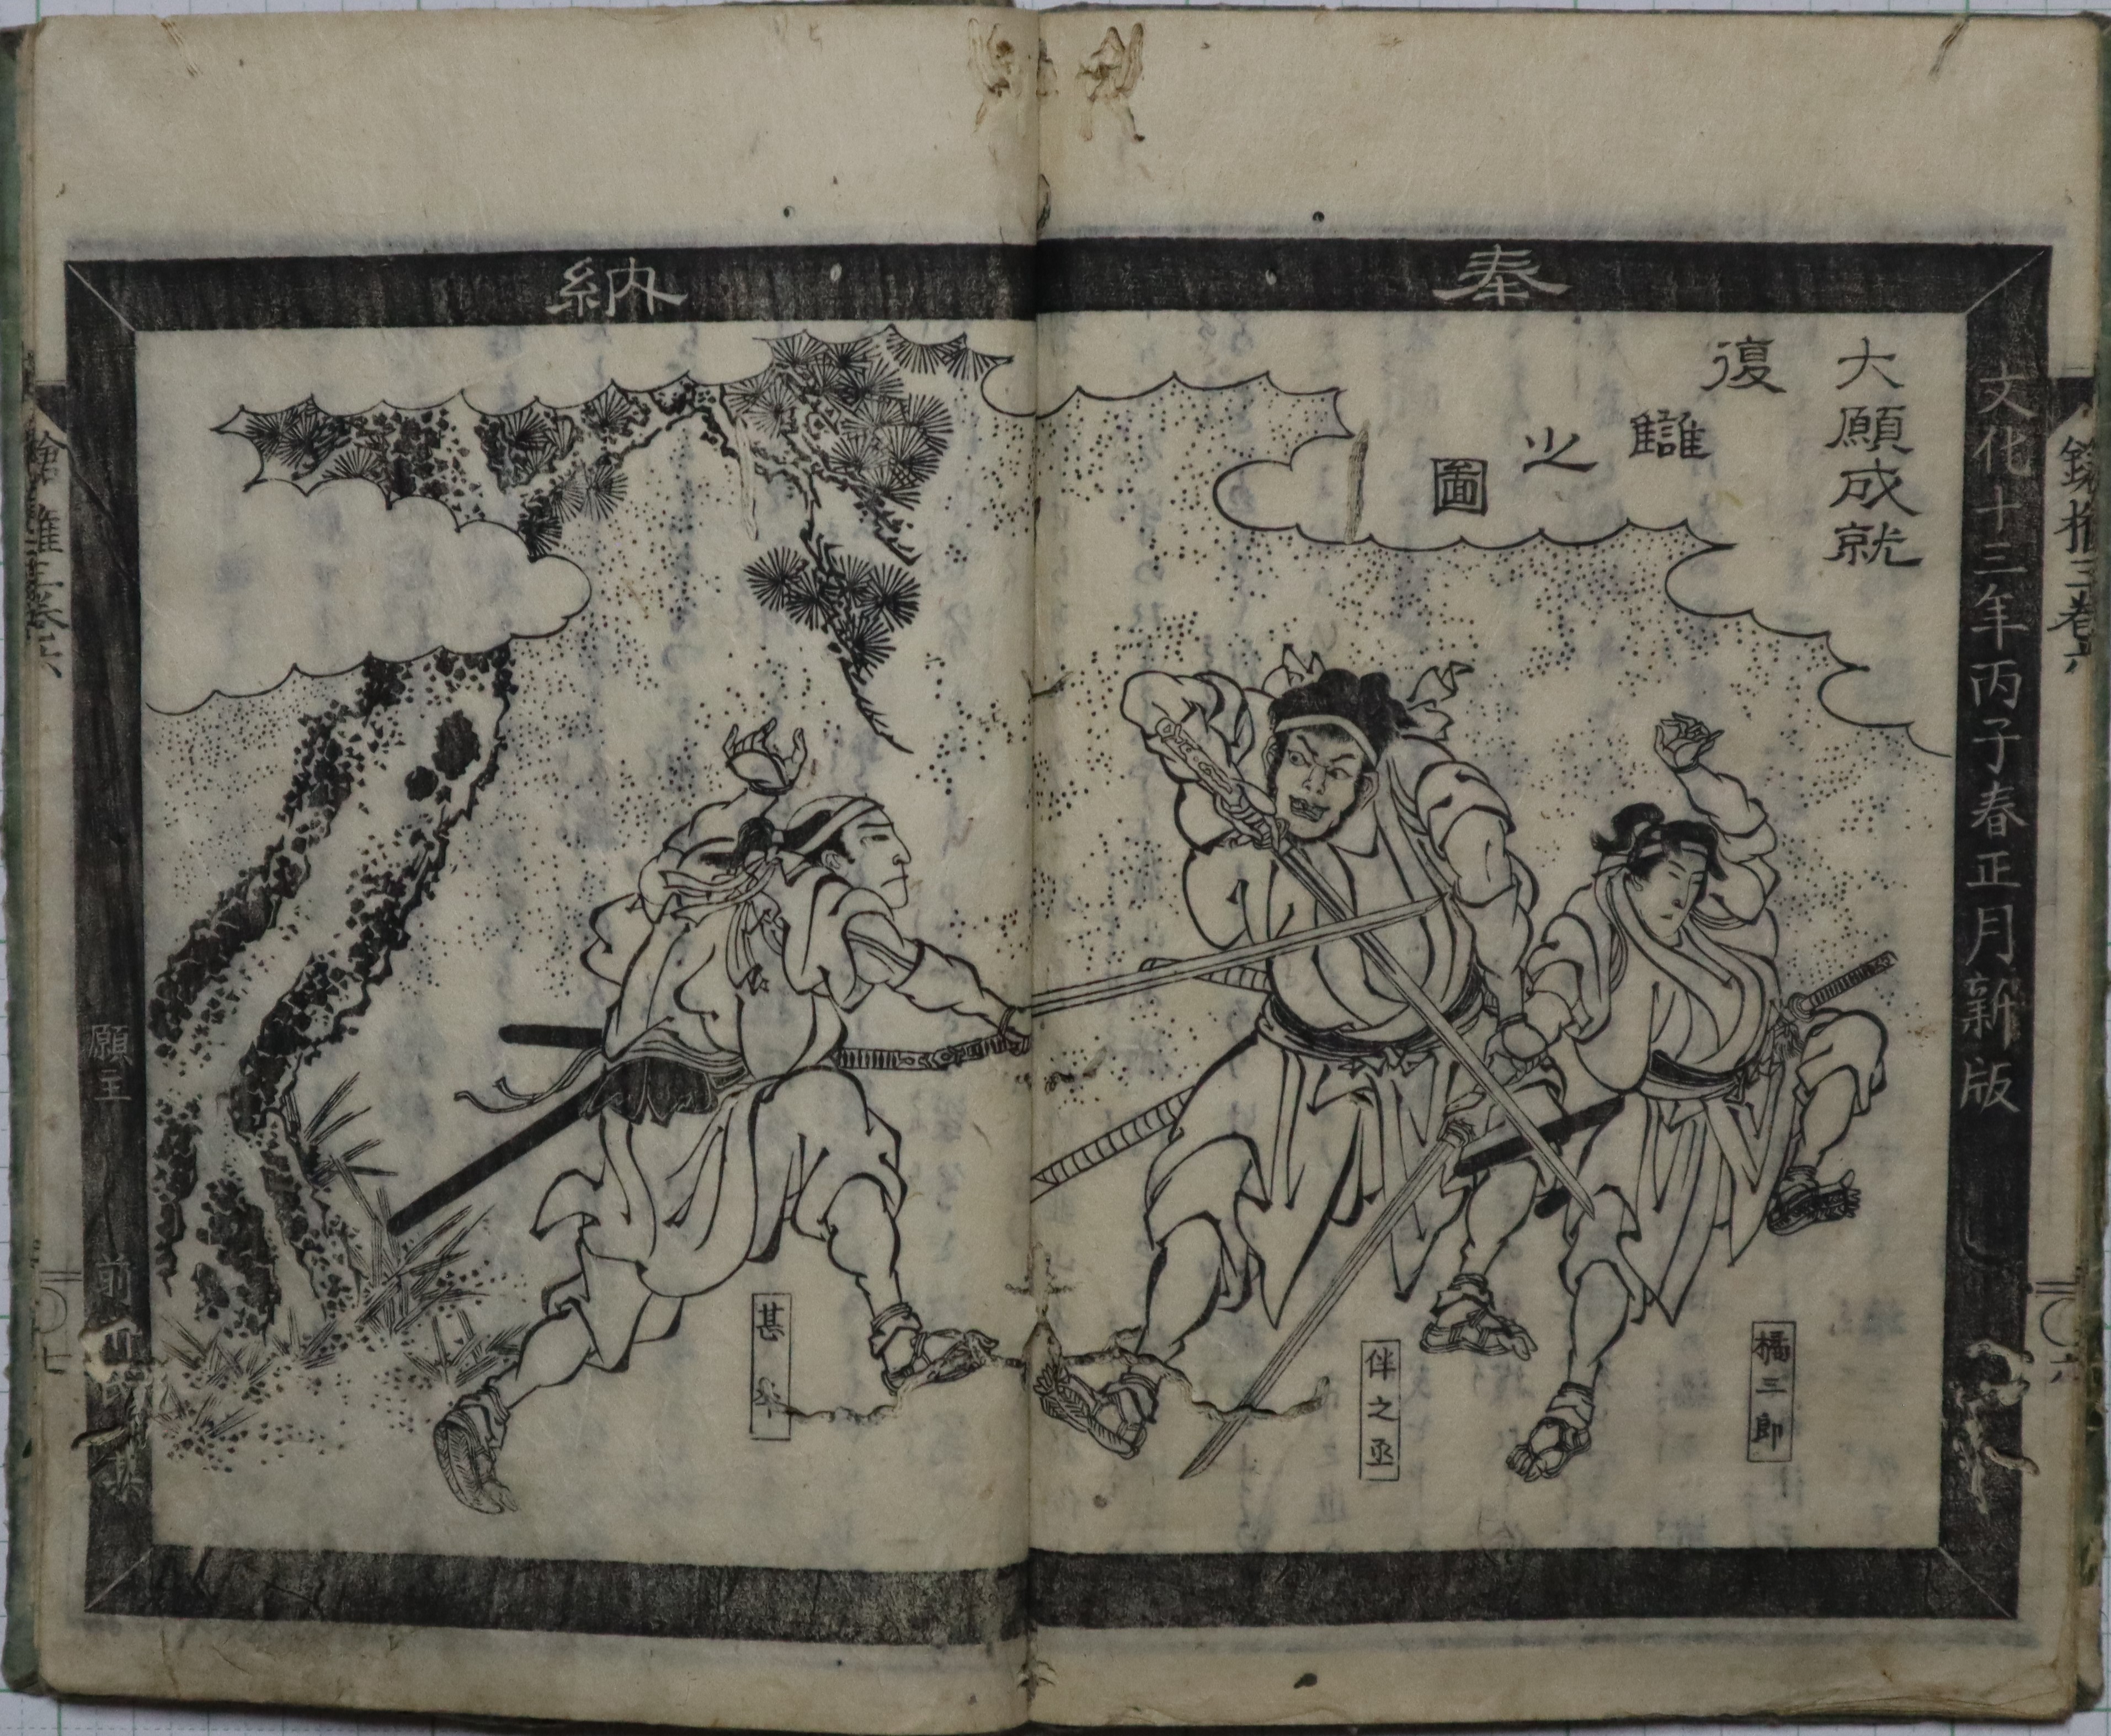 奉
納
文化十三年丙子春正月新版
大願成就
復讎之圖
橘三郎
伴之丞
甚
願主
前
三巻六
六
七